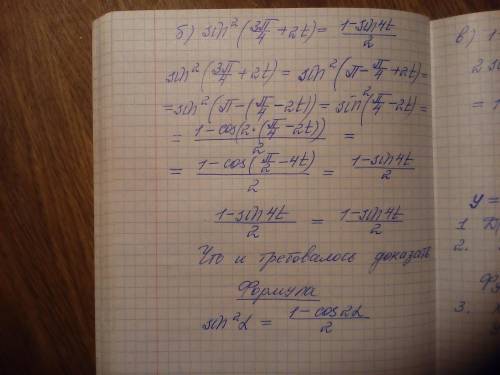 б) sin²(3π/4 + 2t) = (1-sin4t)/2
sin²(3π/4 + 2t) = sin²(π - π/4 + 2t) =
= sin²(π - (π/4 - 2t)) = sin²(π/4 - 2t) =
= (1-cos(2·(π/4 - 2t)))/2 =
= (1-cos(π/2 - 4t))/2 = (1-sin4t)/2
(1-sin4t)/2 = (1-sin4t)/2
Что и требовалось доказать
Формула
sin²α = (1-cos2α)/2
в) 1
= 1
y =
1
2.
3.